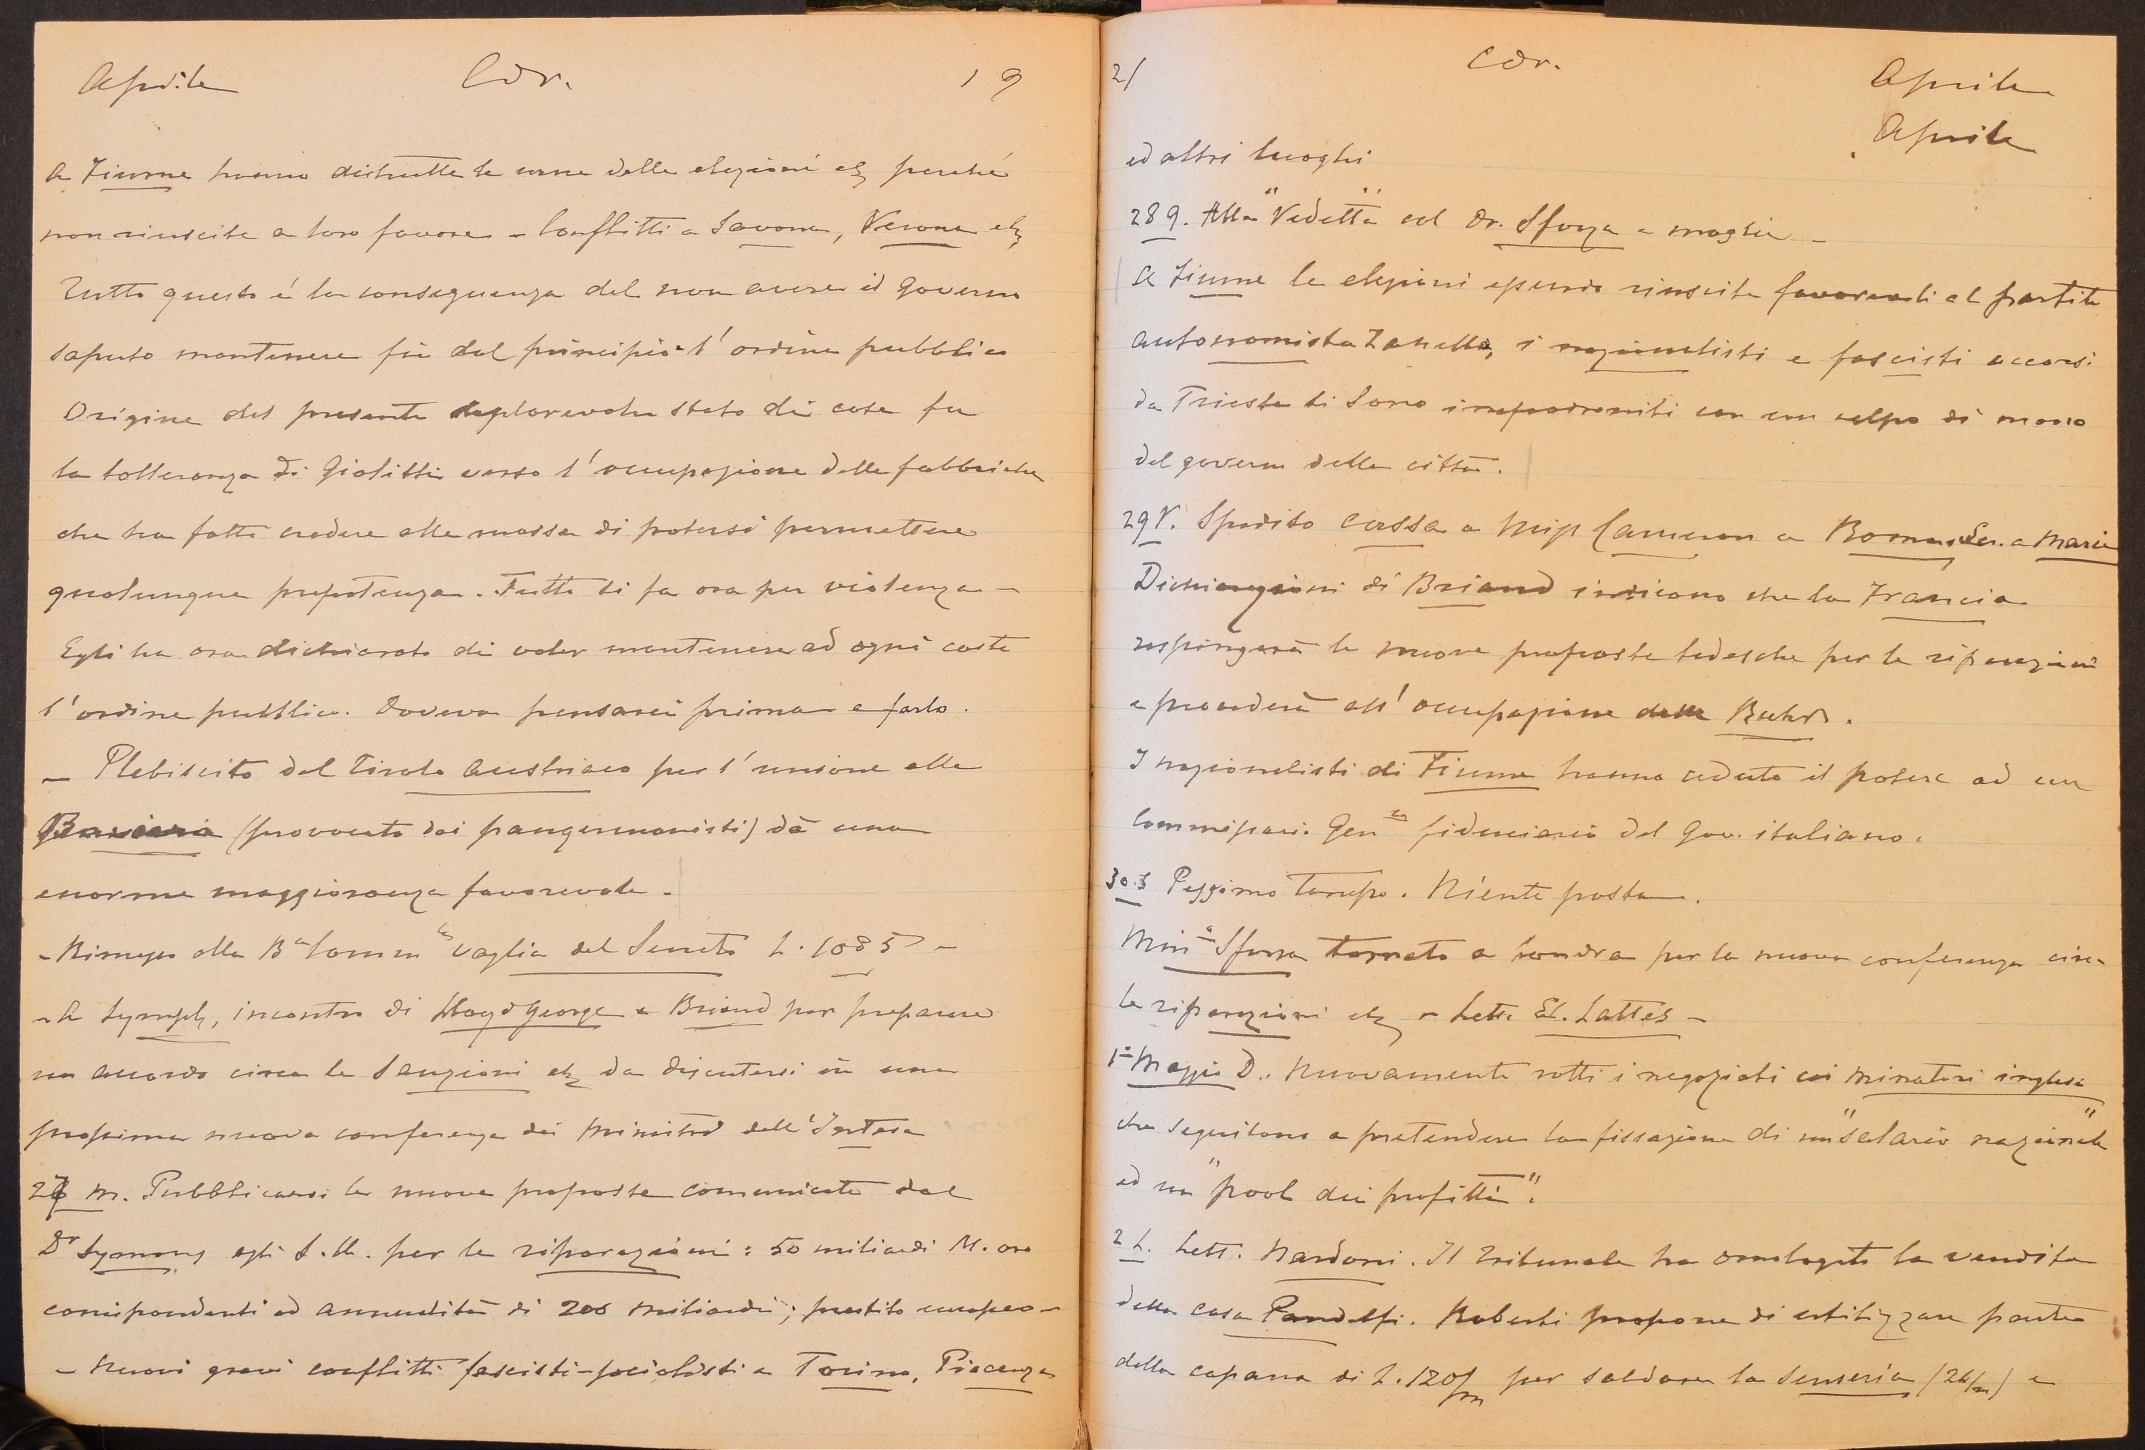 Aprile Cor. 19
A Fiume hanno distrutte le urne delle elezioni etz perché
non riuscite a loro favore - Conflitti a Savona, Verona etz
Tutto questo é la conseguenza del non avere il Governo
saputo mantenere fin dal principio l'ordine pubblico
Origine del presente deplorevole stato di cose fu
la tolleranza di Giolitti verso l'occupazione delle fabbriche
che ha fatto credere alle masse di potersi permettere
qualunque prepotenza. Tutto si fa ora per violenza -
Egli ha ora dichiarato di voler mantenere ad ogni costo
l'ordine pubblico. Doveva pensarci prima e farlo.
- Plebiscito del Tirolo austriaco per l'unione alla
Baviera (provocato dai pangermanisti) dà una
enorme maggioranza favorevole.
- Rimesso alla Bª Comm vaglia del Senato L. 1085 -
- A Lymph, incontro di Lloyd George e Briand per preparare
un accordo circa le Sanzioni etz da discutersi in una
prossima nuova conferenza dei Ministri dell'Intesa
27 M. Pubblicansi le nuove proposte comunicate dal
Dr Symons agli S.U. per le riparazioni: 50 miliardi M. oro
corrispondenti ad annualità di 200 miliardi; prestito europeo -
- Nuovi gravi conflitti fascisti-socialisti a Torino, Piacenza
21 Cor. Aprile
Aprile
ed altri luoghi
28 G. Alla "Vedetta" col Dr. Sforza e moglie -
A Fiume le elezioni essendo riuscite favorevoli al partito
autonomista Zanella, i nazionalisti e fascisti accorsi
da Trieste si sono impadroniti con un colpo di mano
del governo della città.
29 V. Spedito cassa a Miss Cameron a Maria
Dichiarazioni di Briand indicano che la Francia
respingerà le nuove proposte tedesche per le riparazioni
e procederà all'occupazione della Ruhr.
I nazionalisti di Fiume hanno ceduto il potere ad un
Commissario Genle fiduciario del Gov. italiano.
30 S Pessimo tempo. Niente posta.
Minº Sforza tornato a Londra per la nuova conferenza circa
le riparazioni etz - Lett. El. Lattes -
1º Maggio D. Nuovamente rotti i negoziati coi minatori inglesi
che seguitano a pretendere la fissazione di un "salario nazionale"
ed un "pool dei profitti".
2 L. Lett. Nardoni. Il Tribunale ha omologato la vendita
della casa Pandolfi. Roberti propone di utilizzare parte
della caparra di L. 120/m per saldare la Senseria (24/m) e